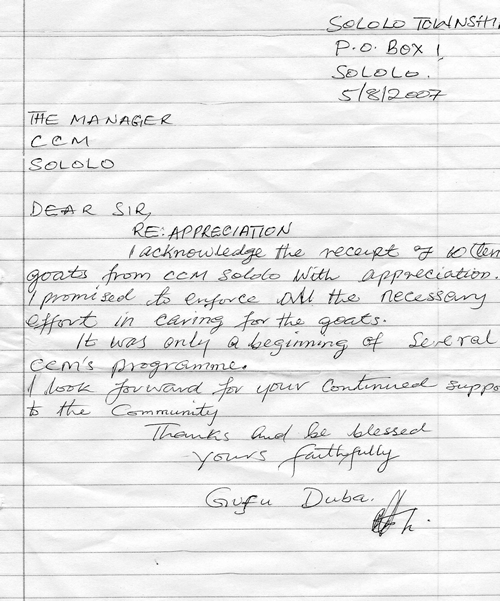 SOLOLO TOWNSHI
P.O. BOX 1
SOLOLO.
5/8/2007
THE MANAGER
CCM
SOLOLO
DEAR SIR,
RE: APPRECIATION
I acknowledge the receipt of 10 (ten
goats from CCM Sololo With appreciation.
I promised to enforce All the necessary
effort in caring for the goats.
It was only a beginning of Several
CCM's programme.
I look forward for your Continued suppo
to the Community
Thanks And be blessed
Yours faithfully
Gufu Duba.